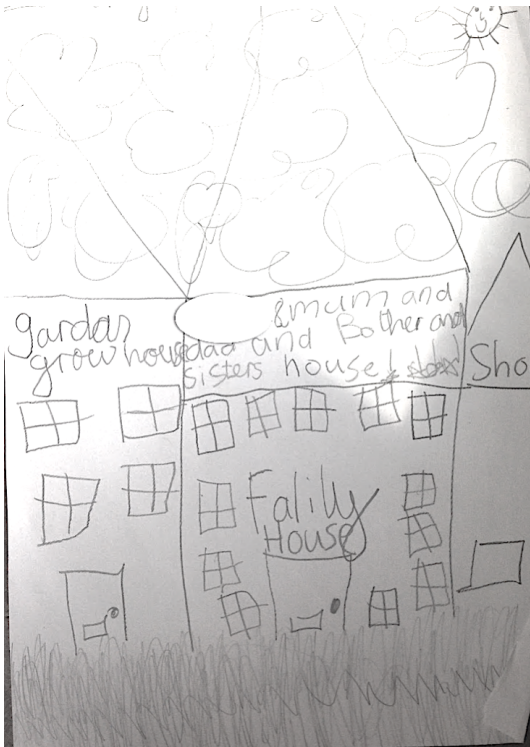 gardan
grow house
&mum and
dad and Bother and
sisters house!
Sho
Falily
House